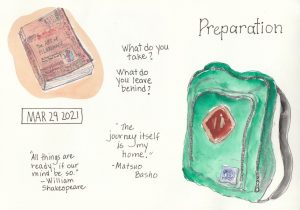 Preparation
What do you
take?
What do
you leave
behind?
THE ART OF
PILGRIMAGE
MAR 29 2021
"The
journey itself
is my
home."
-Matsuo
Basho
"All things are
ready, if our
mind be so."
-William
Shakespeare